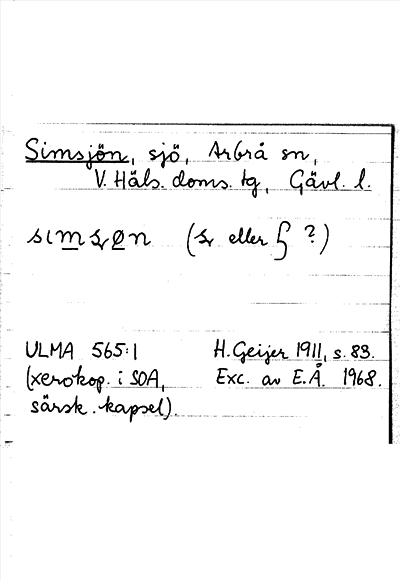 Simsjön, sjö, Arbrå sn,
V. Häls. doms. tg, Gävl. l.
(eller ?)
ULMA 565:1 H. Geijer 1911, s. 83.
(xerokop. i SOA, Exc. av E.Å. 1968.
särsk. kapsel).